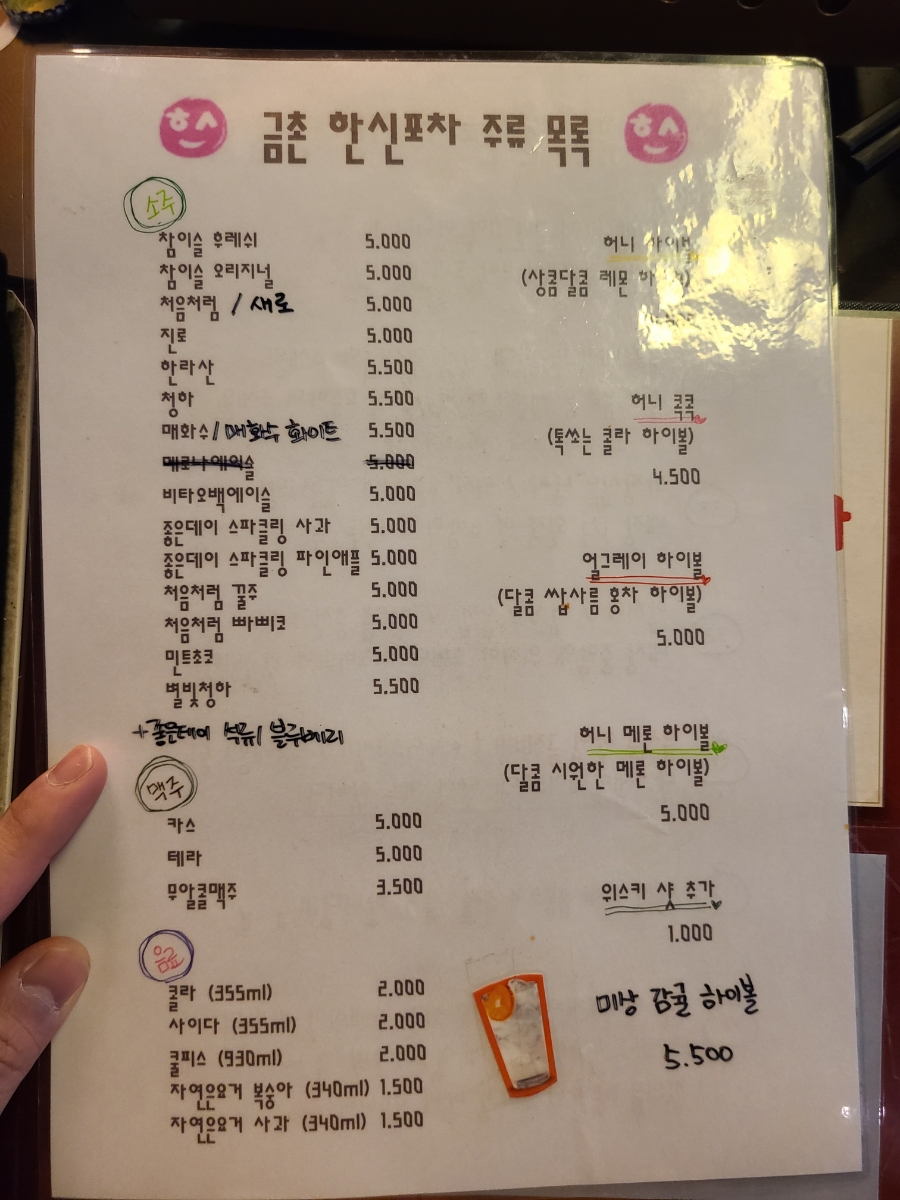 ㅎㅅ 금촌 한신포차 주류 목록 ㅎㅅ
소주
참이슬 후레쉬 5.000
참이슬 오리지널 5.000
처음처럼 / 새로 5.000
진로 5.000
한라산 5.500
청하 5.500
매화수 / 매화수 화이트 5.500
메로나에이슬 5.000
비타오백에이슬 5.000
좋은데이 스파클링 사과 5.000
좋은데이 스파클링 파인애플 5.000
처음처럼 꿀주 5.000
처음처럼 빠삐코 5.000
민트초코 5.000
별빛청하 5.500
+좋은데이 석류/ 블루베리
맥주
카스 5.000
테라 5.000
무알콜맥주 3.500
음료
콜라 (355ml) 2.000
사이다 (355ml) 2.000
쿨피스 (930ml) 2.000
자연은요거 복숭아 (340ml) 1.500
자연은요거 사과 (340ml) 1.500
허니 하이볼
(상콤달콤 레몬
허니 콕콕
(톡쏘는 콜라 하이볼)
4.500
얼그레이 하이볼
(달콤 쌉사름 홍차 하이볼)
5.000
허니 메론 하이볼
(달콤 시원한 메론 하이볼)
5.000
위스키 샷 추가
1.000
미상 감귤 하이볼
5.500